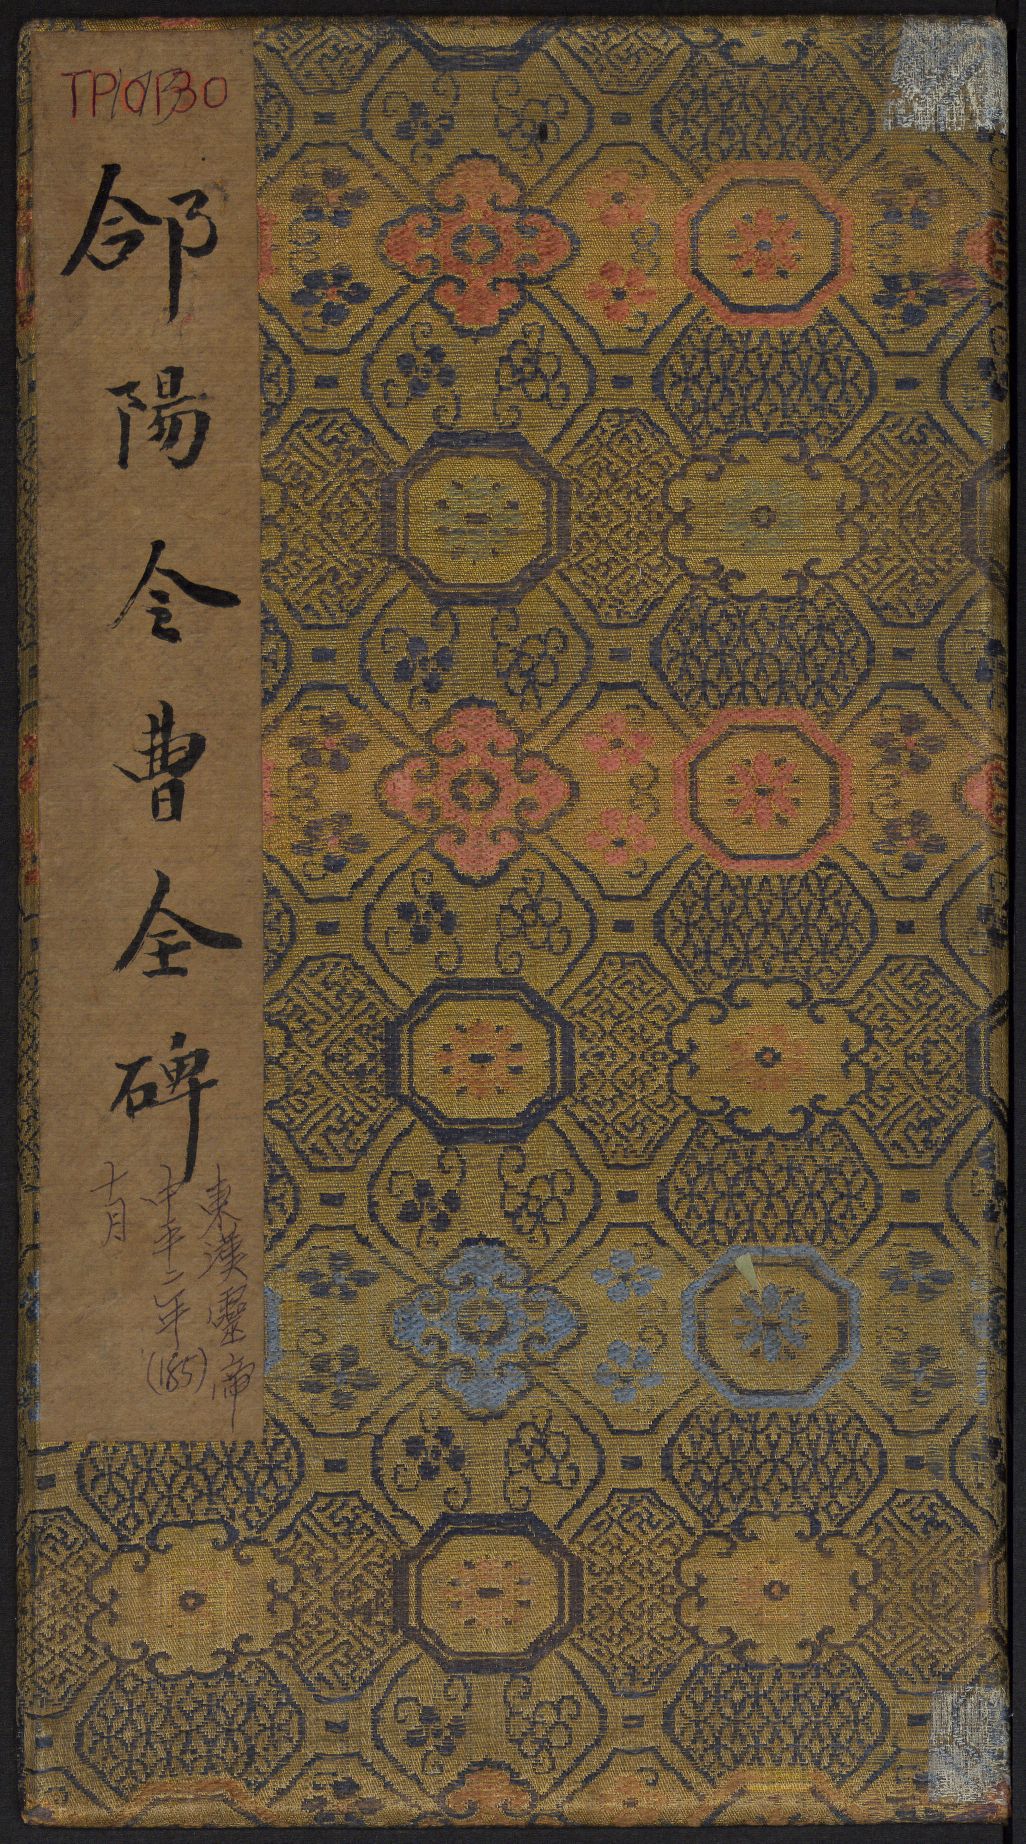 TP10130
郃陽令曹全碑
東漢靈帝
中平二年
(185)
十月